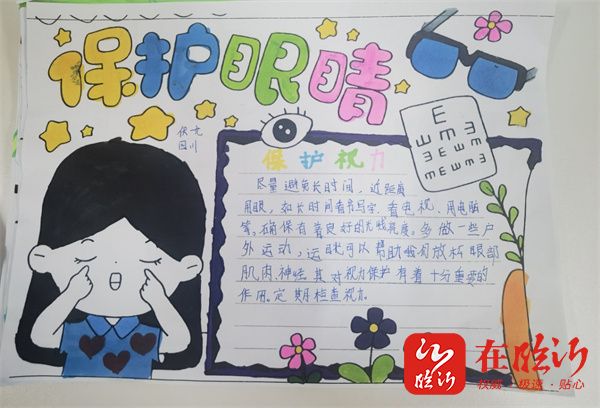 保护眼睛
E
E m 3
m E m 3
m E m 3
保护视力
尽量避免长时间，近距离
用眼，如长时间看书写字，看电视、用电脑
等。确保有着良好的光线亮度。多做一些户
外运动，运动可以帮助我们放松眼部
肌肉、神经，其对视力保护有着十分重要的
作用。定期检查视力。
在临沂
临沂
权威·极速·贴心